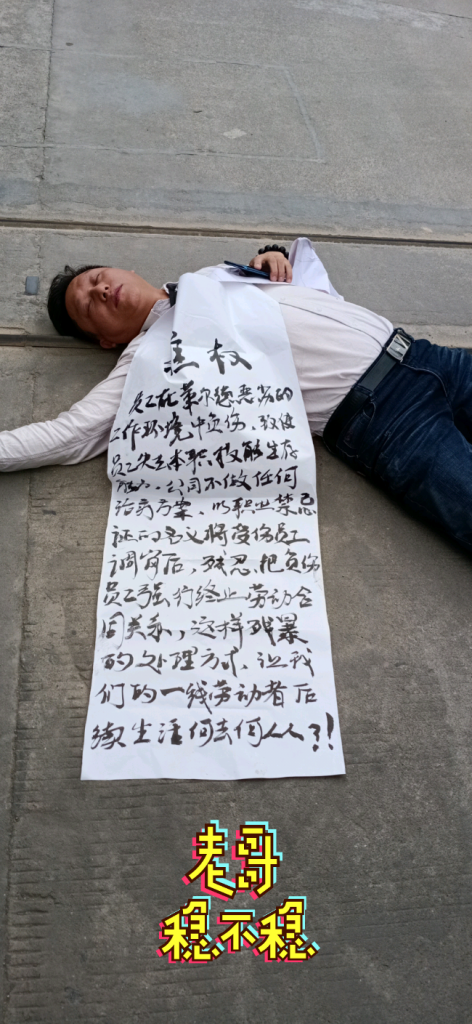 维权
员工在革尔德恶劣的
工作环境中负伤、致使
员工失去本职技能生存
能力。公司不做任何
治疗方案，以职业禁忌
证的名义将受伤员工
调岗后，残忍、把负伤
员工强行终止劳动合
同关系，这样残暴
的处理方式、让我
们的一线劳动者后
续生活何去何从?!!
老哥
稳不稳